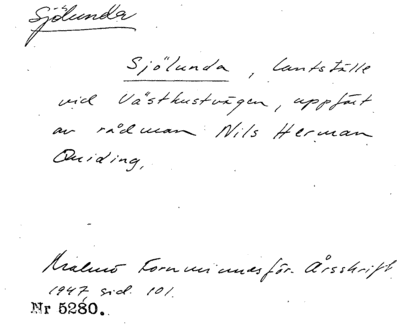 Sjölunda
Sjölunda, lantställe
vid Västkustvägen, uppfört
av rådman Nils Herman
Quiding,
Malmö Fornminnesför. Årsskrift
1947 sid. 101.
Nr 5280.